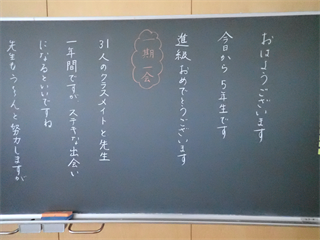 おはようございます
今日から5年生です
進級おめでとうございます
一期一会
31人のクラスメイトと先生
一年間ですがステキな出会い
になるといいですね
先生もうーんと努力しますが